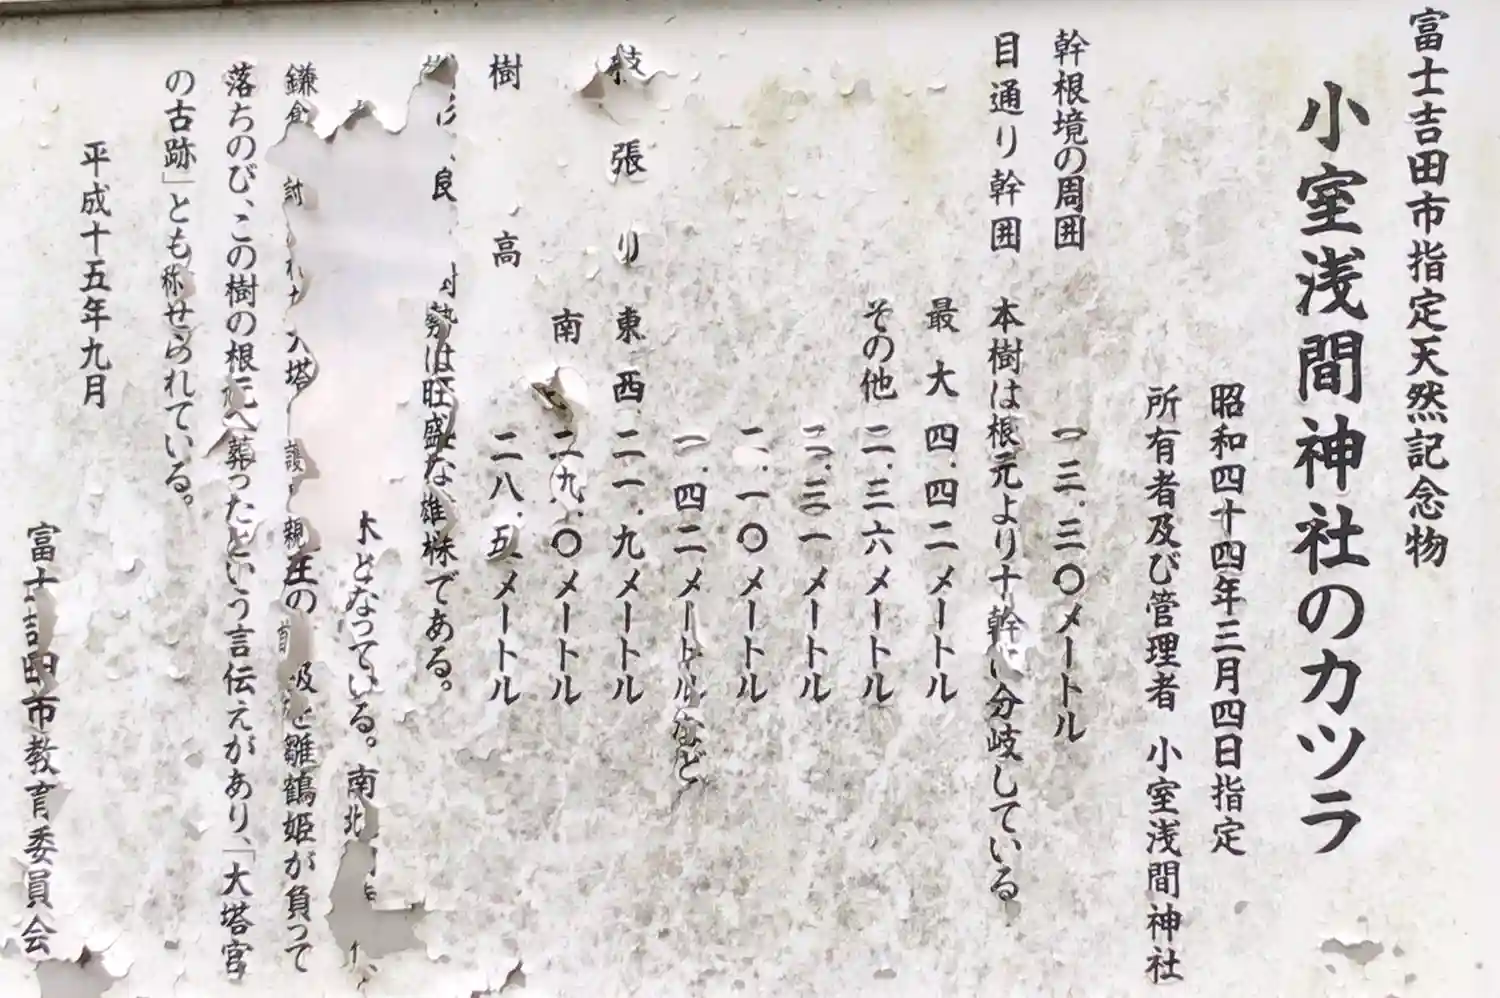 富士吉田市指定天然記念物
小室浅間神社のカツラ
昭和四十四年三月四日指定
所有者及び管理者 小室浅間神社
幹根境の周囲 一三.三〇メートル
目通り幹囲 本樹は根元より十幹に分岐している
最大 四.四二メートル
その他 二.三六メートル
二.三一メートル
二.一〇メートル
一.四二メートルなど
枝張り 東西 二一.九メートル
南 二九.〇メートル
樹高 二八.五メートル
良 勢は旺盛な雄株である。
となっている。南北
鎌倉 討 塔 護 親王の 首級を雛鶴姫が負って
落ちのび、この樹の根元へ葬ったという言伝えがあり、「大塔宮
の古跡」とも称せられている。
平成十五年九月
富士吉田市教育委員会